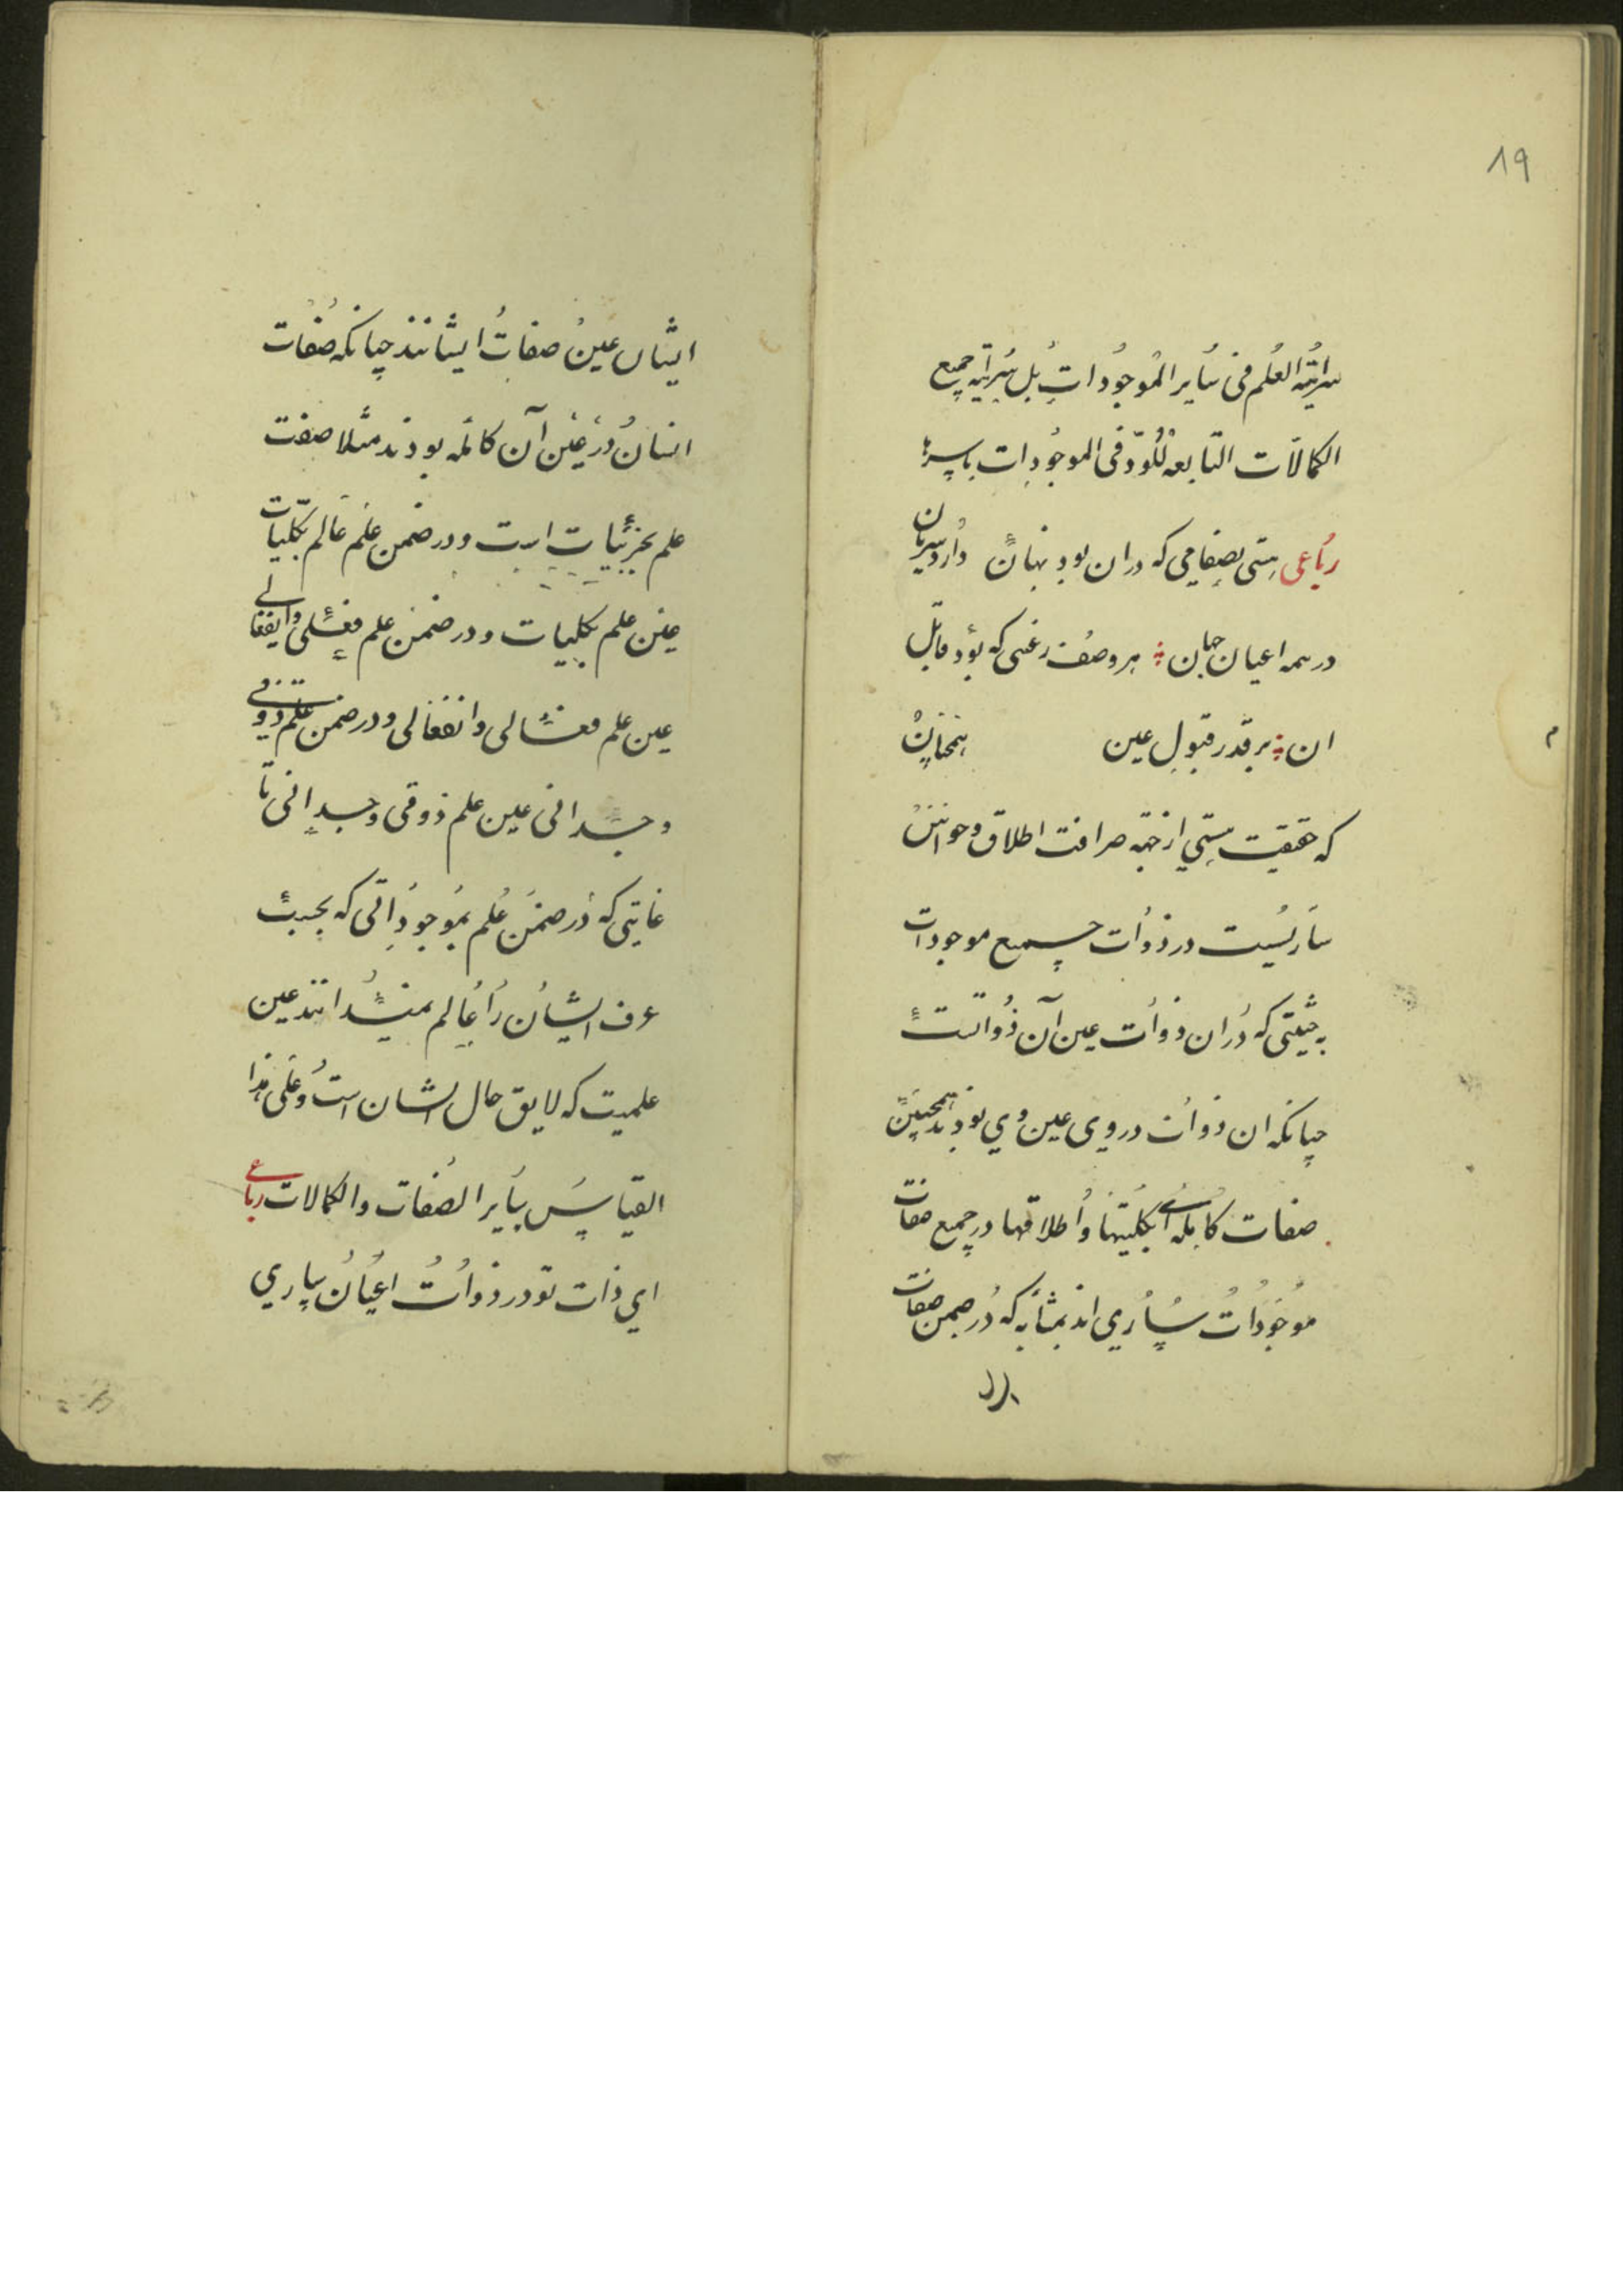 ١٩
سرایته العلم فی سایر الموجودات بل سرایة جمیع
الکمالات التابعه للوجود فی الموجودات باسرها
رباعی هستی بصفاتی که دران بود نهان دارد سریان
در همه اعیان جهان هر وصف زعینی که بود قابل
ان بر قدر قبول عین همچنان
که حقیقت هستی از جهة صرافت اطلاق خوانش
ساریست در ذوات جمیع موجودات
به حیثیتی که دران ذوات عین آن ذواتست
چنانکه ان ذوات در وی عین وی بودند همچنین
صفات کامله بکلیتها و اطلاقها در جمیع صفات
موجودات ساری اند بمثابه که در ضمن صفات
ایشان عین صفات ایشانند چنانکه صفات
انسان در عین آن کامله بودند مثلا صفت
علم بجزئیات است و در ضمن علم عالم بکلیات
عین علم بکلیات و در ضمن علم فعلی و انفعالی
عین علم فعالی و انفعالی و در ضمن علم ذوقی
وجدانی عین علم ذوقی وجدانی تا
غایتی که در ضمن علم بموجوداتی که بحسب
عرف ایشان را عالم نمیدانند عین
علمیت که لایق حال ایشان است و علی هذا
القیاس سایر الصفات والکمالات رباعی
ای ذات تو در ذوات اعیان ساری